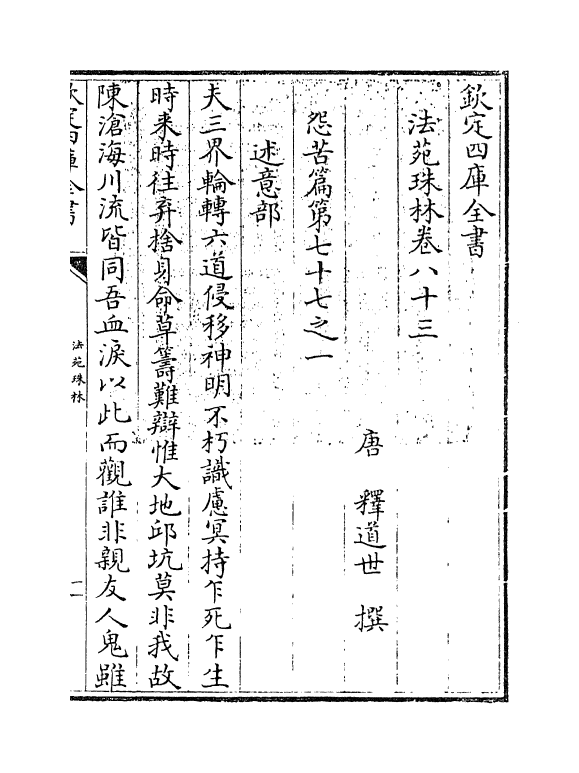 欽定四庫全書
法苑珠林卷八十三
唐 釋道世 撰
怨苦篇第七十七之一
述意部
夫三界輪轉六道侵移神明不朽識慮冥持乍死乍生
時來時往弃捨身命草籌難辯惟大地邱坑莫非我故
陳滄海川流皆同吾血淚以此而觀誰非親友人鬼雖
欽定四庫全書
法苑珠林